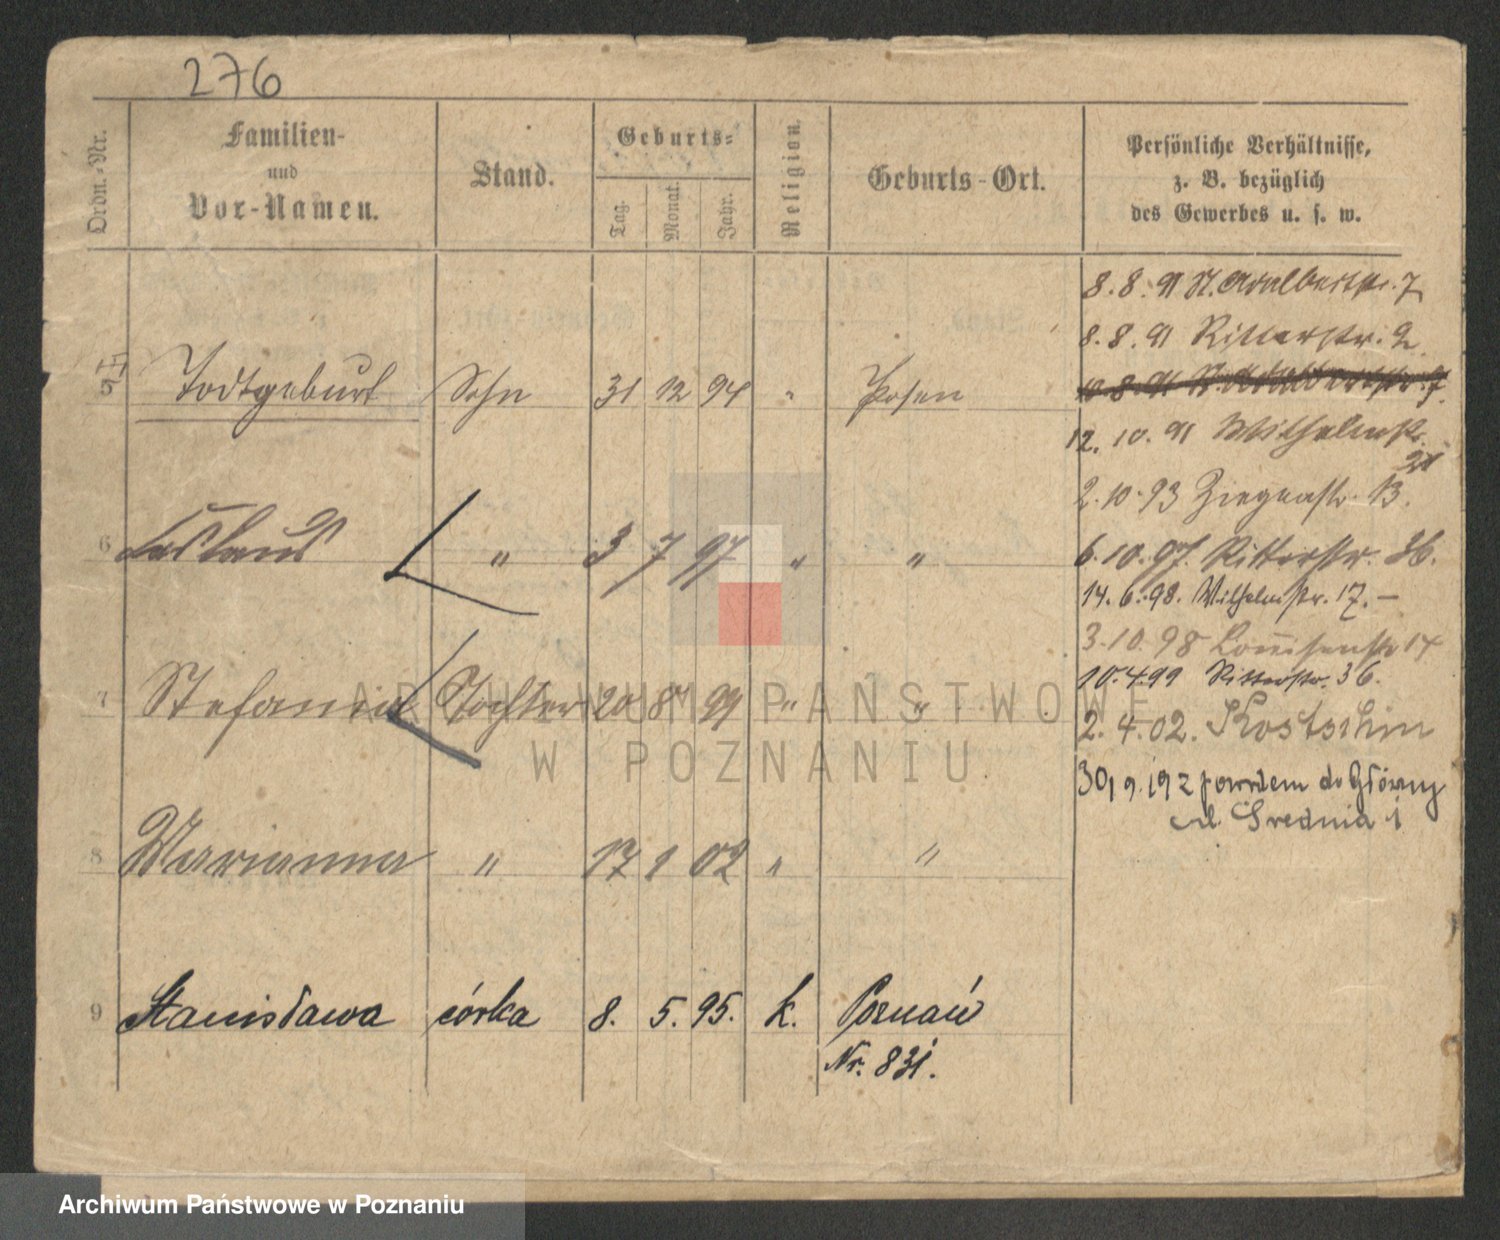 276
Ordn.-Nr.
Familien-
und
Vor-Namen.
Stand.
Geburts-
Tag.
Monat.
Jahr.
Religion.
Geburts-Ort.
Persönliche Verhältnisse,
z. B. bezüglich
des Gewerbes u. s. w.
8.8.91 St. Adalbertstr. 7
8.8.91 Ritterstr. 2
5 Todtgeburt Sohn 31 12 94 " Posen
12.10.91 Wilhelmstr.
2.10.93 Ziegenstr. 13.
6 " 3 7 97 " "
6.10.97. Ritterstr. 36.
14.6.98. Wilhelmstr. 17. —
3.10.98 Louisenstr 14
10.4.99 Ritterstr. 36.
7 Stefania Tochter 20 8 99 " "
2.4.02. Kostschin
30/9.192 powrotem do Główny
ul. Srednia 1
8 Marianna " 17 1 02 " "
9 Stanisława córka 8. 5. 95. k. Poznań
Nr. 831.
ARCHIWUM PAŃSTWOWE
W POZNANIU
Archiwum Państwowe w Poznaniu